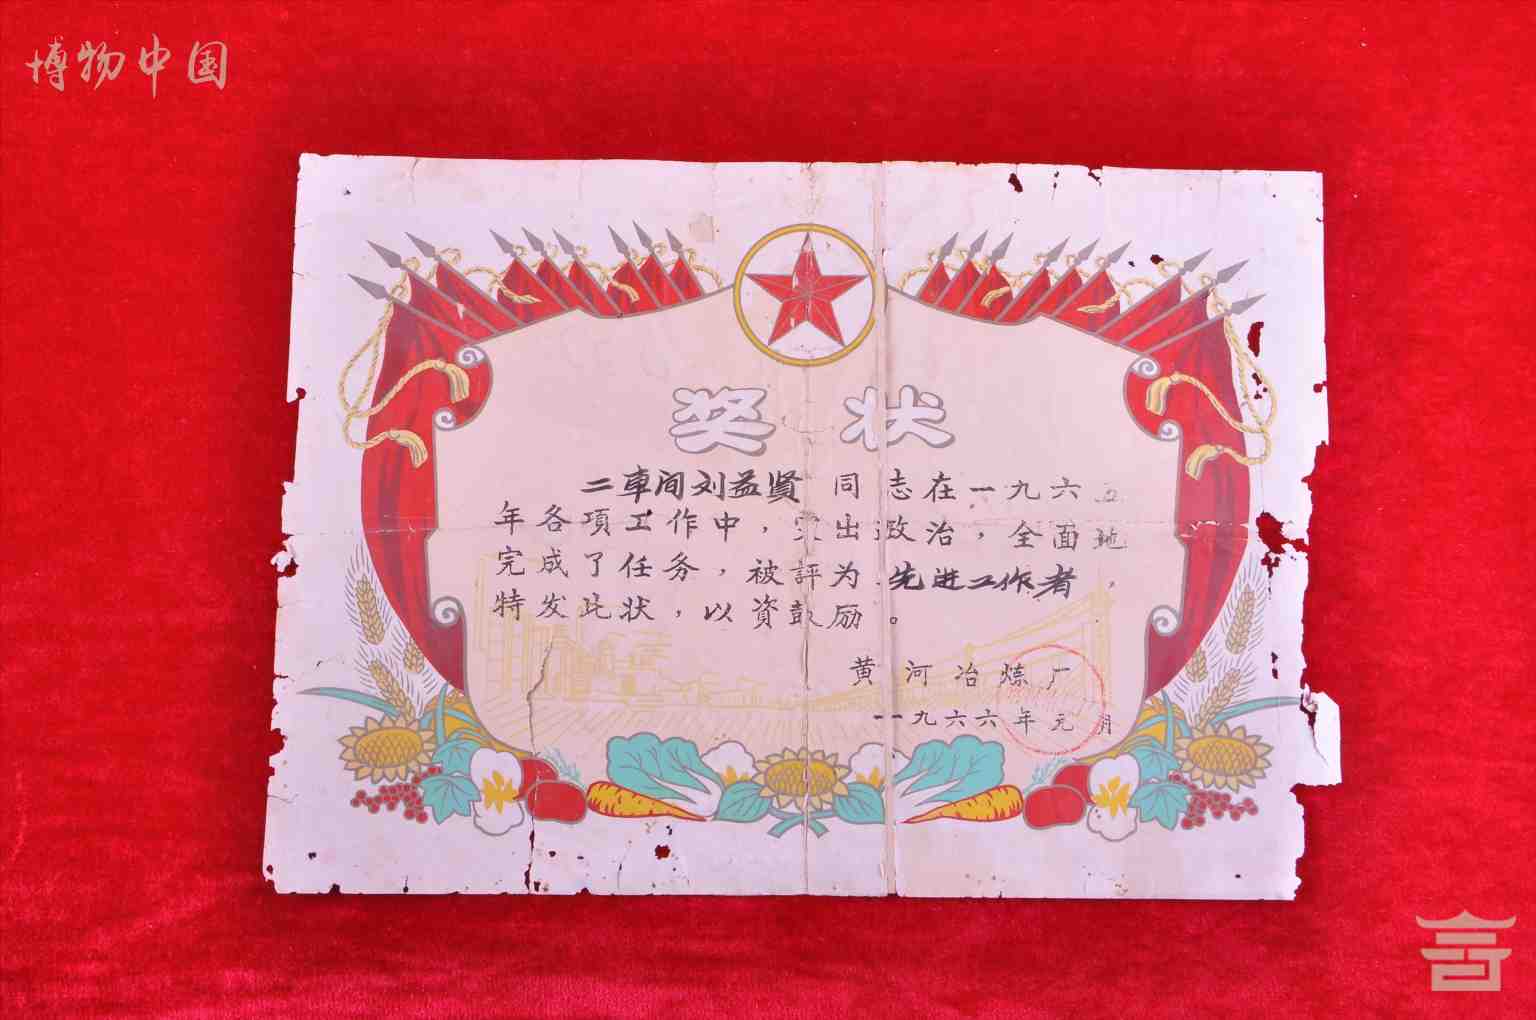 博物中国
奖状
二車间刘益贤 同志在一九六五
年各項工作中，突出政治，全面地
完成了任务，被評为 先进工作者，
特发此状，以資鼓励。
黄河冶炼厂
一九六六年元月